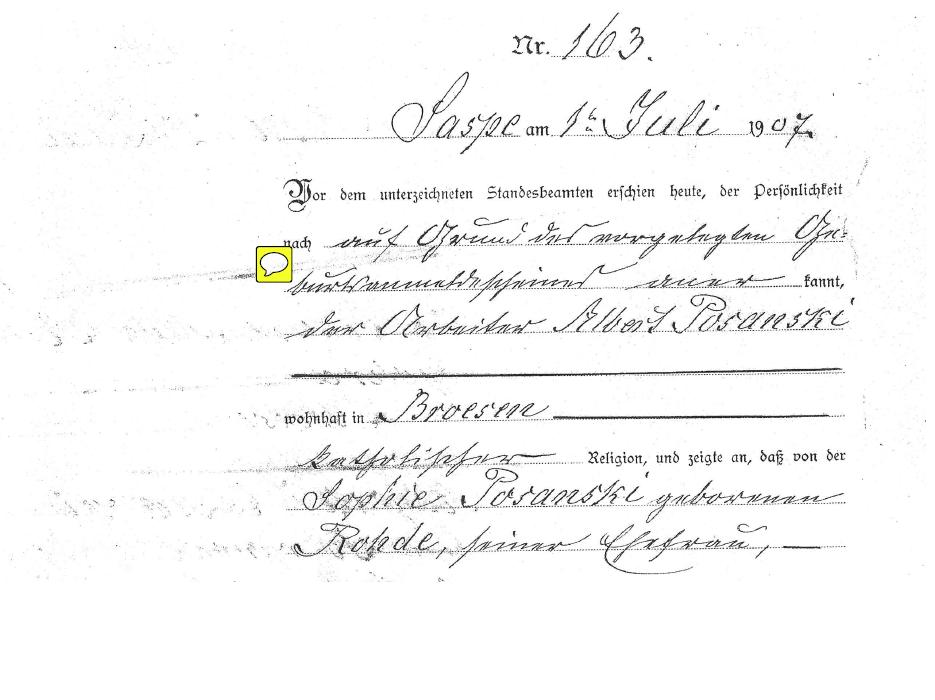 Nr. 163.
Saspe am 1ten Juli 1907.
Vor dem unterzeichneten Standesbeamten erschien heute, der Persönlichkeit
nach auf Grund des vorgelegten Ge-
burtsanmeldescheines aner kannt,
der Arbeiter Albert Posanski
wohnhaft in Broesen
katholischer Religion, und zeigte an, daß von der
Sophie Posanski geborenen
Rohde, seiner Ehefrau,